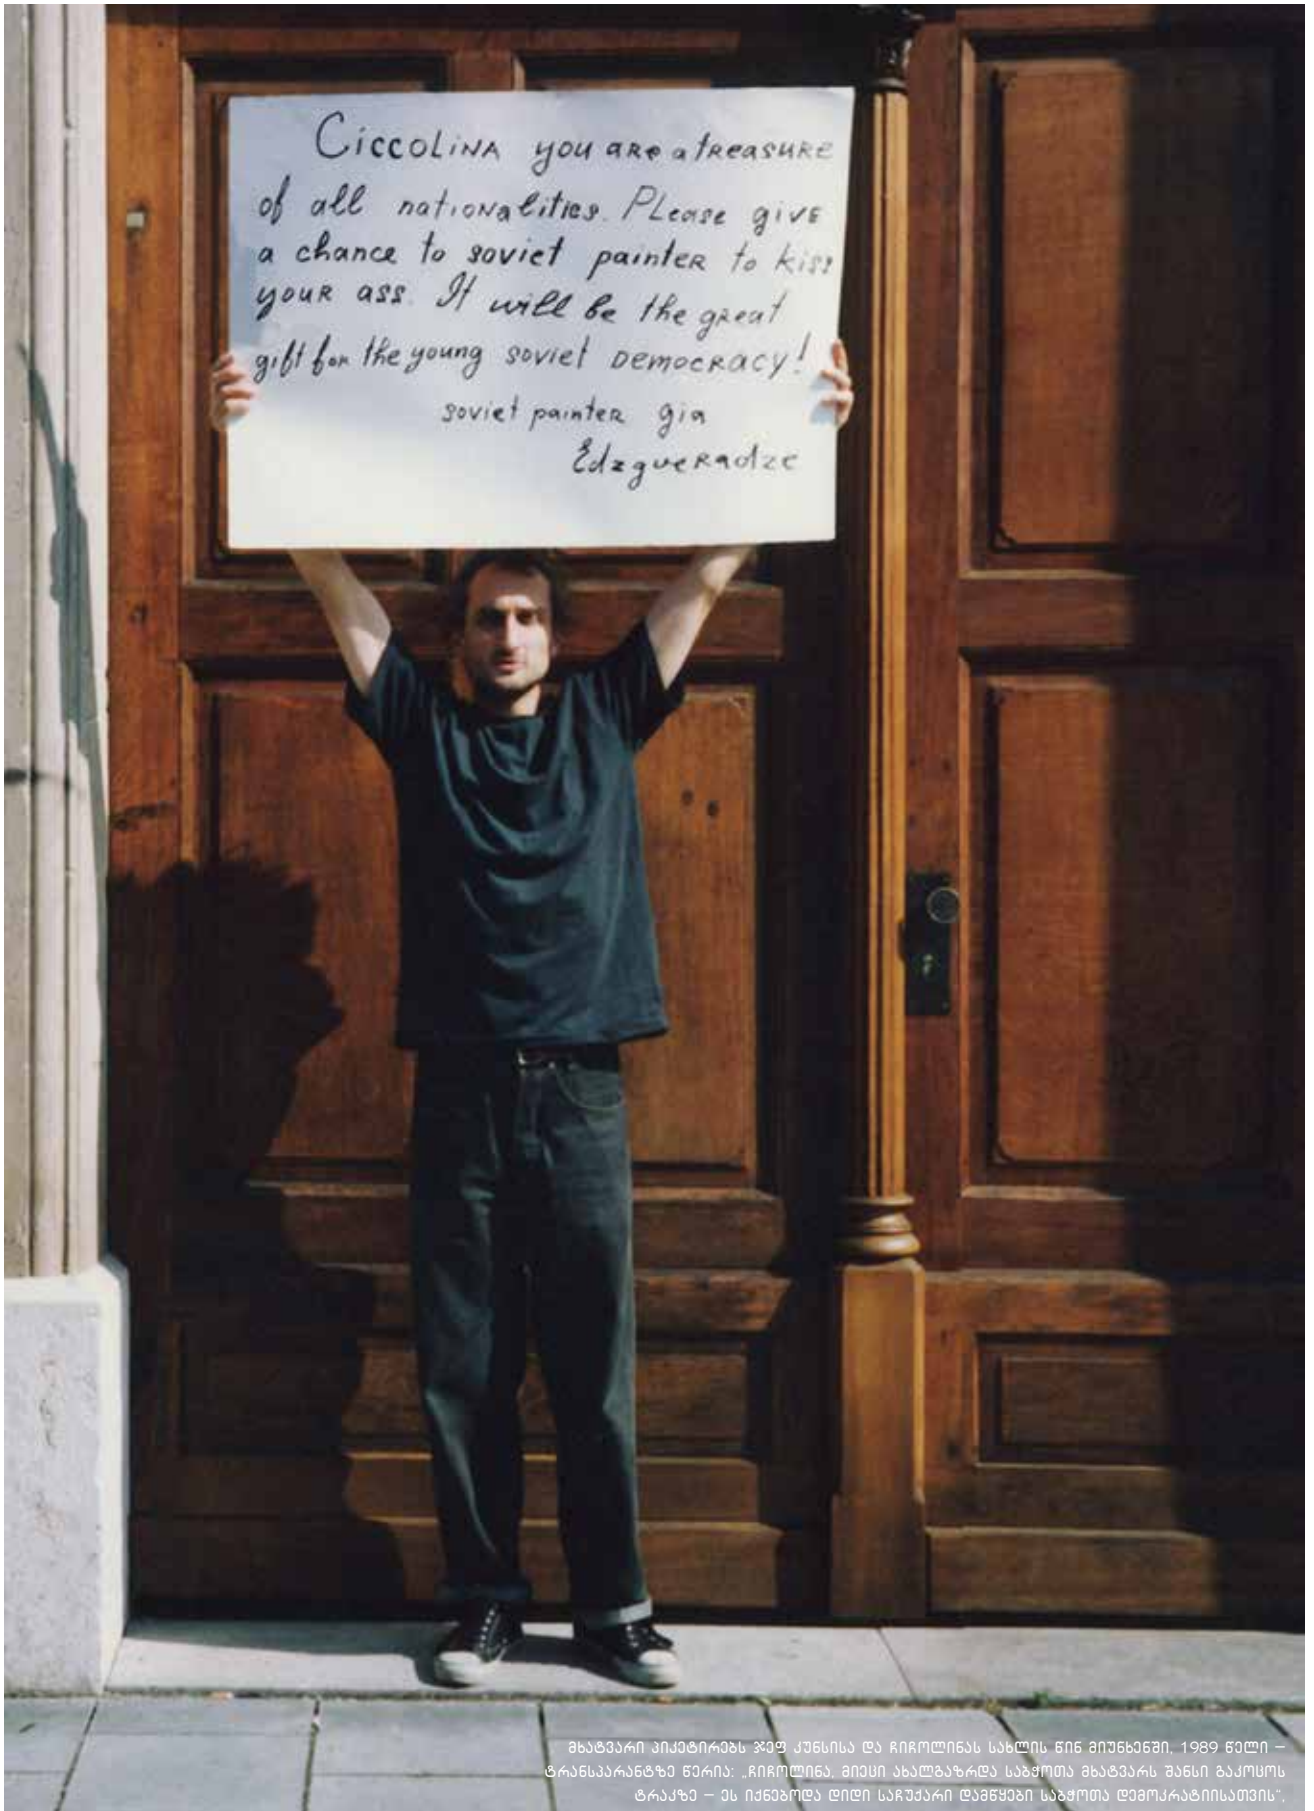 Ciccolina you are a treasure
of all nationalities. Please give
a chance to soviet painter to kiss
your ass. It will be the great
gift for the young soviet democracy!
soviet painter gia
Edzgueradze
მხატვარი პიკეტირებს ჯეფ კუნსისა და ჩიჩოლინას სახლის წინ მიუნხენში, 1989 წელი –
ტრანსპარანტზე წერია: „ჩიჩოლინა, მიეცი ახალგაზრდა საბჭოთა მხატვარს შანსი გაკოცოს
ტრაკზე – ეს იქნებოდა დიდი საჩუქარი დამწყები საბჭოთა დემოკრატიისათვის“,